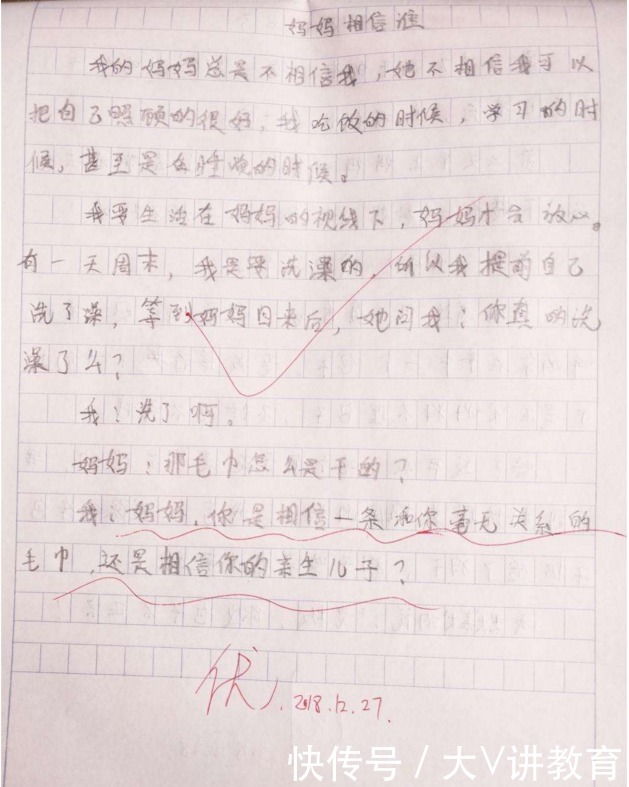 妈妈相信谁
我的妈妈总是不相信我，她不相信我可以
把自己照顾的很好，我吃饭的时候，学习的时
候，甚至是在睡觉的时候。
我要生活在妈妈的视线下，妈妈才会放心。
有一天周末，我是要洗澡的，所以我提前自己
洗了澡，等到妈妈回来后，她问我：你真的洗
澡了么？
我：洗了啊。
妈妈：那毛巾怎么是干的？
我：妈妈，你是相信一条和你毫无关系的
毛巾，还是相信你的亲生儿子？
优
2018.12.27.
快传号 / 大V讲教育